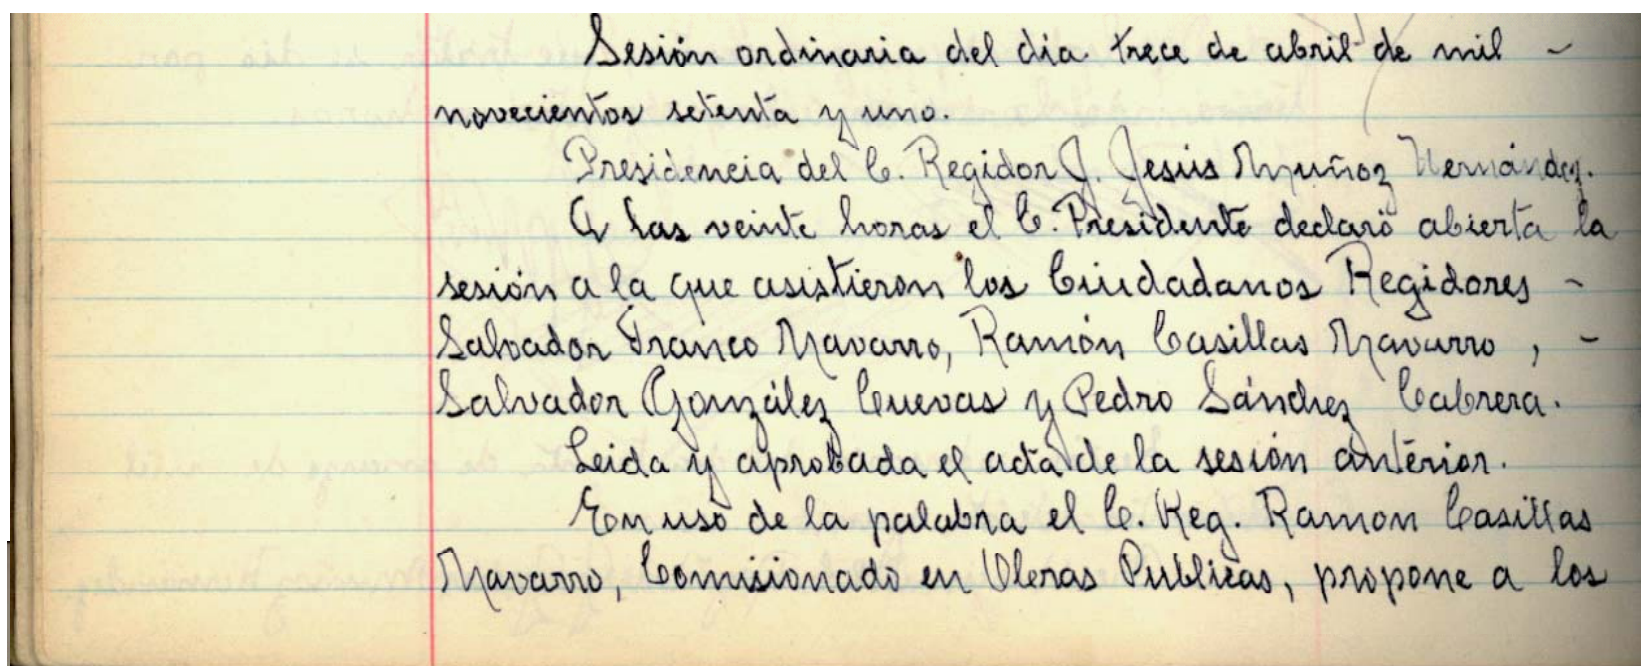 Sesión ordinaria del dia trece de abril de mil -
novecientos setenta y uno.
Presidencia del C. Regidor J. Jesús Muñoz Hernández.
A las veinte horas el C. Presidente declaró abierta la
sesión a la que asistieron los Ciudadanos Regidores -
Salvador Franco Navarro, Ramón Casillas Navarro, -
Salvador González Cuevas y Pedro Sánchez Cabrera.
Leida y aprobada el acta de la sesión anterior.
En uso de la palabra el C. Reg. Ramon Casillas
Navarro, Comisionado en Obras Publicas, propone a los